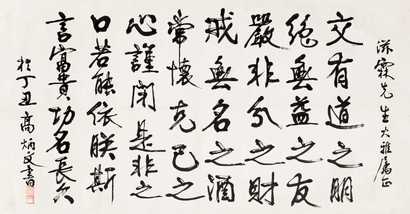 沛霖先生大雅属正
交有道之朋
絕無益之友
嚴非分之財
戒無名之酒
常懷克己之
心謹閉是非之
口若能依朕斯
言富貴功名長久
於丁丑高炳文書